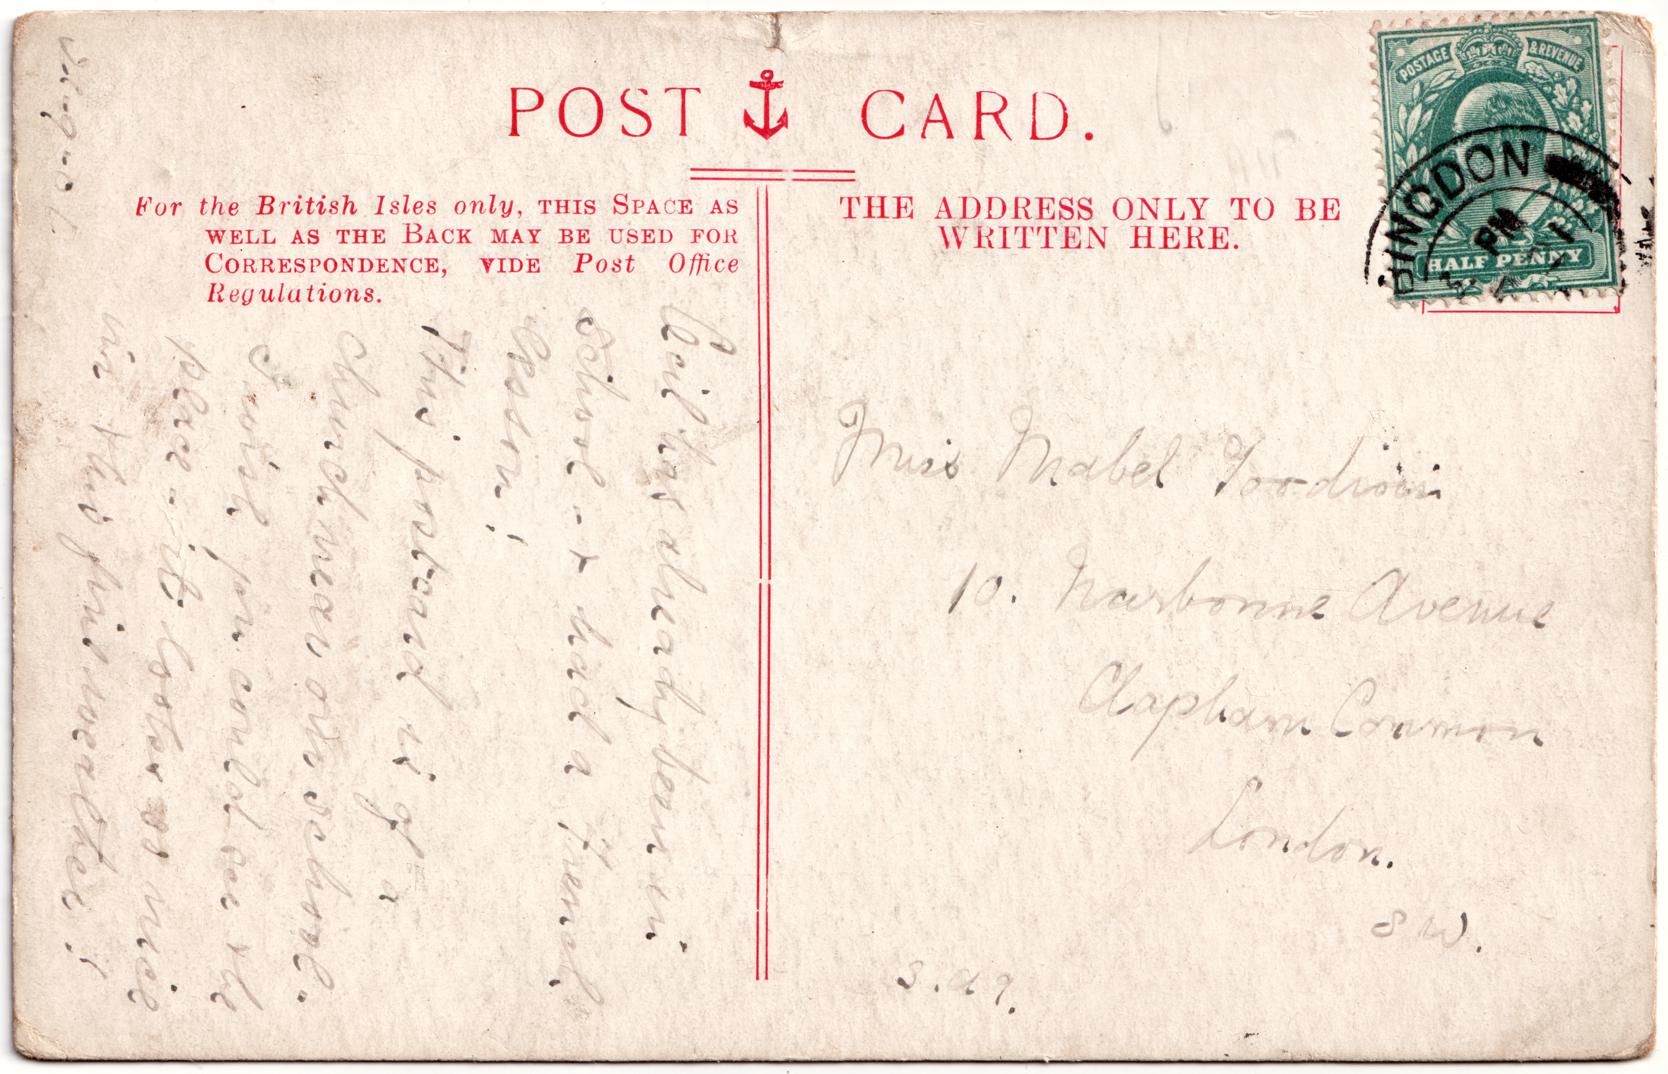 POST CARD.
For the British Isles only, THIS SPACE AS
WELL AS THE BACK MAY BE USED FOR
CORRESPONDENCE, VIDE Post Office
Regulations.
THE ADDRESS ONLY TO BE
WRITTEN HERE.
POSTAGE & REVENUE
HALF PENNY
BINGDON
PM
Cecil has already been in
school - & had a French
lesson;
This postcard is of a
church near our school.
I wish you could see the
place - it looks so nice
in this fine weather!
Miss Mabel
10. Narbonne Avenue
Clapham Common
London.
SW.